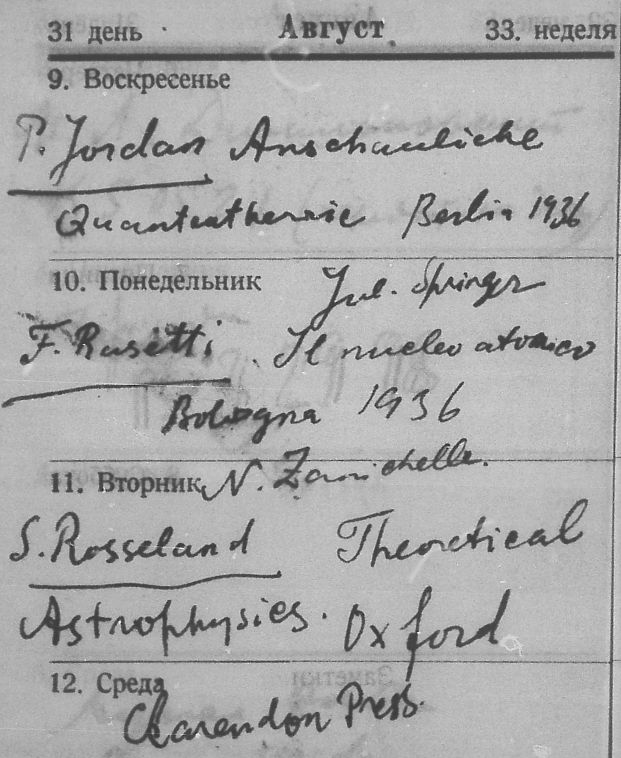 31 день Август 33. неделя
9. Воскресенье
P. Jordan Anschauliche
Quantentheorie Berlin 1936
10. Понедельник Jul. Springer
F. Rasetti. Il nucleo atomico
Bologna 1936
11. Вторник N. Zanichelle.
S. Rosseland Theoretical
Astrophysics. Oxford
12. Среда
Clarendon Press.